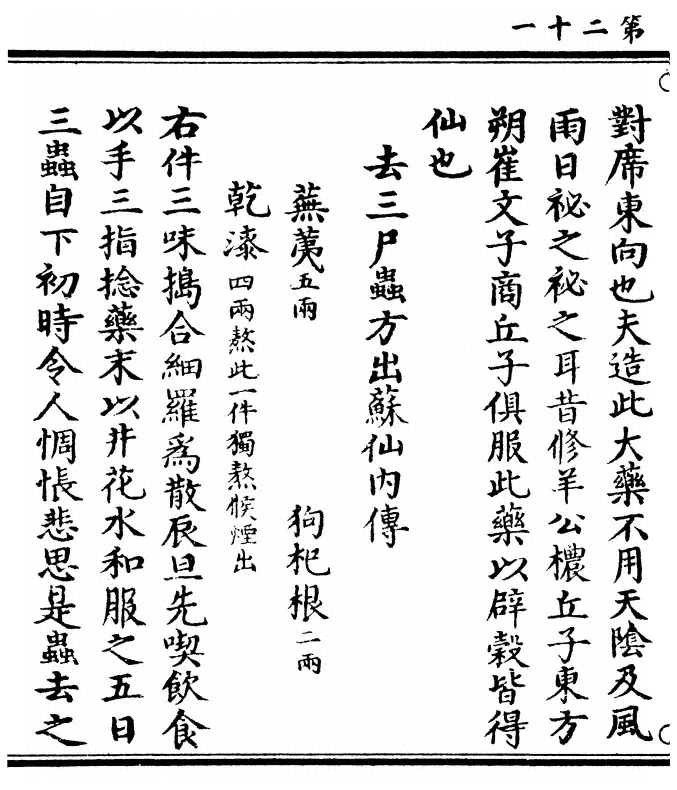 第二十一
對席東向也夫造此大藥不用天陰及風
雨日祕之祕之耳昔修羊公檂丘子東方
朔崔文子商丘子俱服此藥以辟穀皆得
仙也
去三尸蟲方出蘇仙內傳
蕪荑五兩 狗杞根二兩
乾漆四兩熬此一件獨熬候煙出
右件三味搗合細羅為散辰旦先喫飲食
以手三指捻藥末以井花水和服之五日
三蟲自下初時令人惆悵悲思是蟲去之